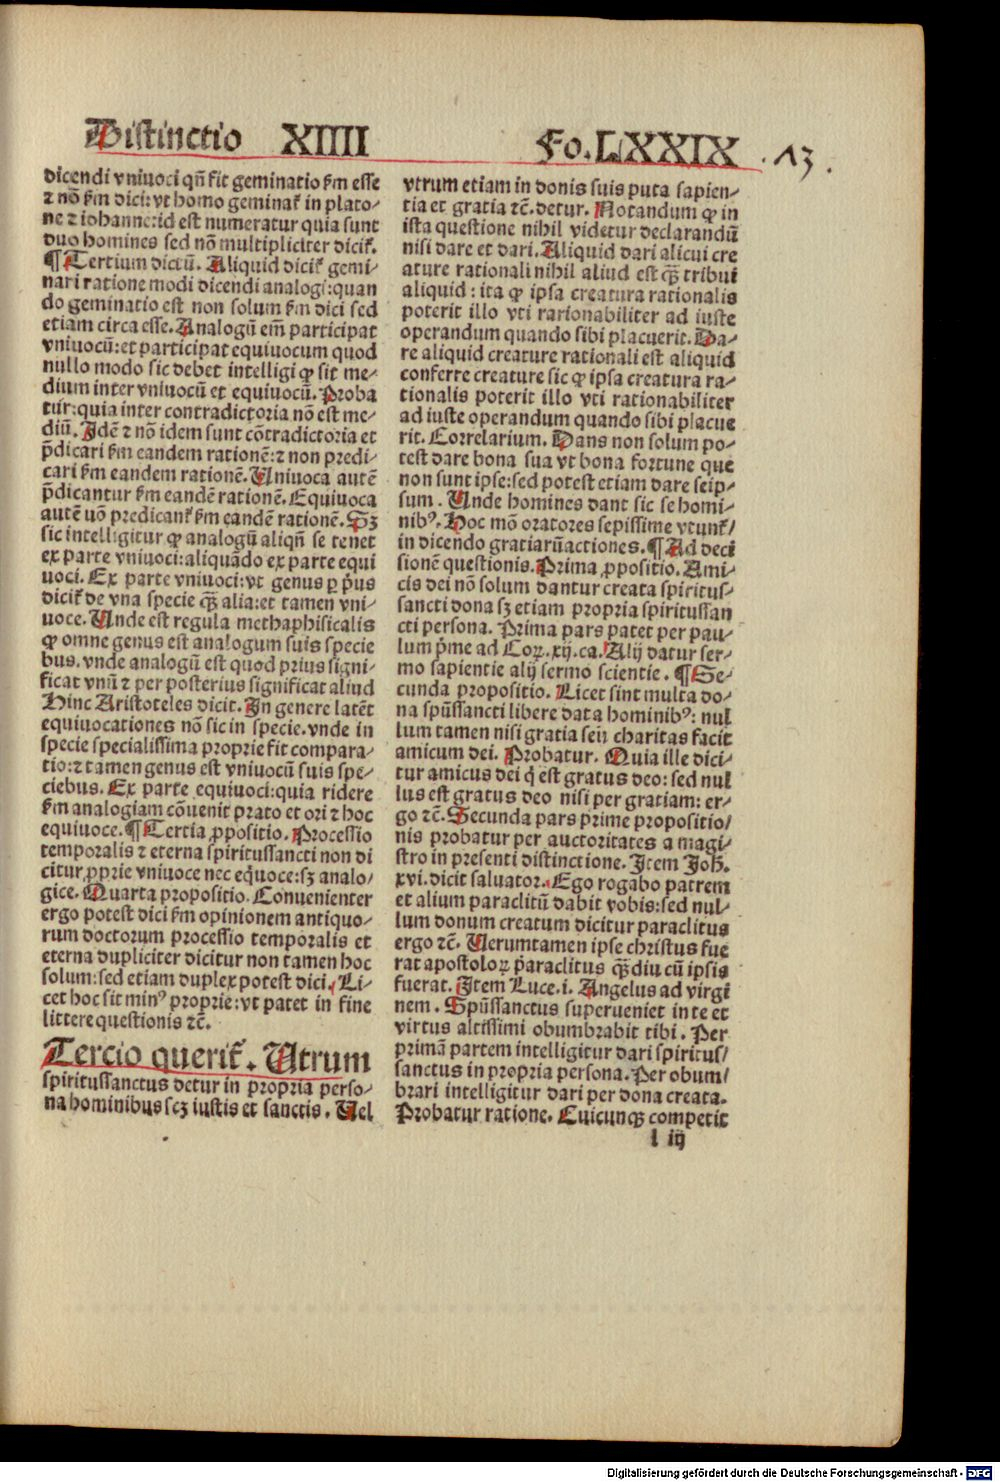 Distinctio XIIII Fo. LXXIX . 13 .
dicendi vniuoci qñ fit geminatio ẜm esse
⁊ nõ ẜm dici: vt homo geminat᷑ in plato-
ne ⁊ iohanne: id est numeratur quia sunt
duo homines sed nõ multipliciter dicit᷑.
¶ Tertium dictũ. Aliquid dicit᷑ gemi-
nari ratione modi dicendi analogi: quan
do geminatio est non solum ẜm dici sed
etiam circa esse. Analogũ em̃ participat
vniuocũ: et participat equiuocum quod
nullo modo sic debet intelligi ꝙ sit me-
dium inter vniuocũ et equiuocũ. Proba
tur: quia inter contradictoria nõ est me-
diũ. Idẽ ⁊ nõ idem sunt cõtradictoria et
p̃dicari ẜm eandem rationẽ: ⁊ non predi-
cari ẜm eandem rationẽ. Uniuoca autẽ
p̃dicantur ẜm eandẽ rationẽ. Equiuoca
autẽ uõ predicant᷑ ẜm eandẽ rationẽ. Sꝫ
sic intelligitur ꝙ analogũ aliqñ se tenet
ex parte vniuoci: aliquãdo ex parte equi
uoci. Ex parte vniuoci: vt genus ꝑ p̃us
dicit᷑ de vna specie q̃ꝫ alia: et tamen vni-
uoce. Unde est regula methaphisicalis
ꝙ omne genus est analogum suis specie
bus. vnde analogũ est quod prius signi-
ficat vnũ ⁊ per posterius significat aliud
Hinc Aristoteles dicit. In genere latẽt
equiuocationes nõ sic in specie. vnde in
specie specialissima proprie fit compara-
tio: ⁊ tamen genus est vniuocũ suis spe-
ciebus. Ex parte equiuoci: quia ridere
ẜm analogiam cõuenit prato et ori ⁊ hoc
equiuoce. ¶ Tertia ꝓpositio. Processio
temporalis ⁊ eterna spiritussancti non di
citur ꝓprie vniuoce nec eq̃uoce: sꝫ analo-
gice. Quarta propositio. Conuenienter
ergo potest dici ẜm opinionem antiquo-
rum doctorum processio temporalis et
eterna dupliciter dicitur non tamen hoc
solum: sed etiam duplex potest dici. Li-
cet hoc sit minꝰ proprie: vt patet in fine
littere questionis ⁊c̃.
Tercio querit᷑. Utrum
spiritussanctus detur in propria perso-
na hominibus scꝫ iustis et sanctis. Uel
vtrum etiam in donis suis puta sapien-
tia et gratia ⁊c̃. detur. Notandum ꝙ in
ista questione nihil videtur declarandũ
nisi dare et dari. Aliquid dari alicui cre
ature rationali nihil aliud est q̃ꝫ tribui
aliquid: ita ꝙ ipsa creatura rationalis
poterit illo vti rarionabiliter ad iuste
operandum quando sibi placuerit. Da-
re aliquid creature rationali est aliquid
conferre creature sic ꝙ ipsa creatura ra-
tionalis poterit illo vti rationabiliter
ad iuste operandum quando sibi placue
rit. Correlarium. Dans non solum po-
test dare bona sua vt bona fortune que
non sunt ipse: sed potest etiam dare seip-
sum. Unde homines dant sic se homi-
nibꝰ. Hoc mõ oratores sepissime vtunt᷑/
in dicendo gratiarũactiones. ¶ Ad deci
sionẽ questionis. Prima ꝓpositio. Ami-
cis dei nõ solum dantur creata spiritus-
sancti dona sꝫ etiam propria spiritussan
cti persona. Prima pars patet per pau-
lum p̃me ad Coꝝ. xij. ca. Alij datur ser-
mo sapientie alij sermo scientie. ¶ Se-
cunda propositio. Licet sint multa do-
na spũssancti libere data hominibꝰ: nul
lum tamen nisi gratia seu charitas facit
amicum dei. Probatur. Quia ille dici-
tur amicus dei q̃ est gratus deo: sed nul
lus est gratus deo nisi per gratiam: er-
go ⁊c̃. Secunda pars prime propositio/
nis probatur per auctoritates a magi-
stro in presenti distinctione. Item Joh̃.
xvi. dicit saluator. Ego rogabo patrem
et alium paraclitũ dabit vobis: sed nul-
lum donum creatum dicitur paraclitus
ergo ⁊c̃. Uerumtamen ipse christus fue
rat apostoloꝝ p̃araclitus q̃ꝫdiu cũ ipsis
fuerat. Item Luce. i. Angelus ad virgi
nem. Spũssanctus superueniet in te et
virtus altissimi obumbrabit tibi. Per
primã partem intelligitur dari spiritus/
sanctus in propria persona. Per obum/
brari intelligitur dari per dona creata.
Probatur ratione. Cuicunqꝫ competit
l iij
Digitalisierung gefördert durch die Deutsche Forschungsgemeinschaft - DFG